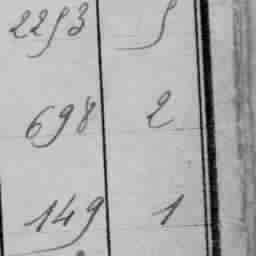 2253 5
698 2
149 1